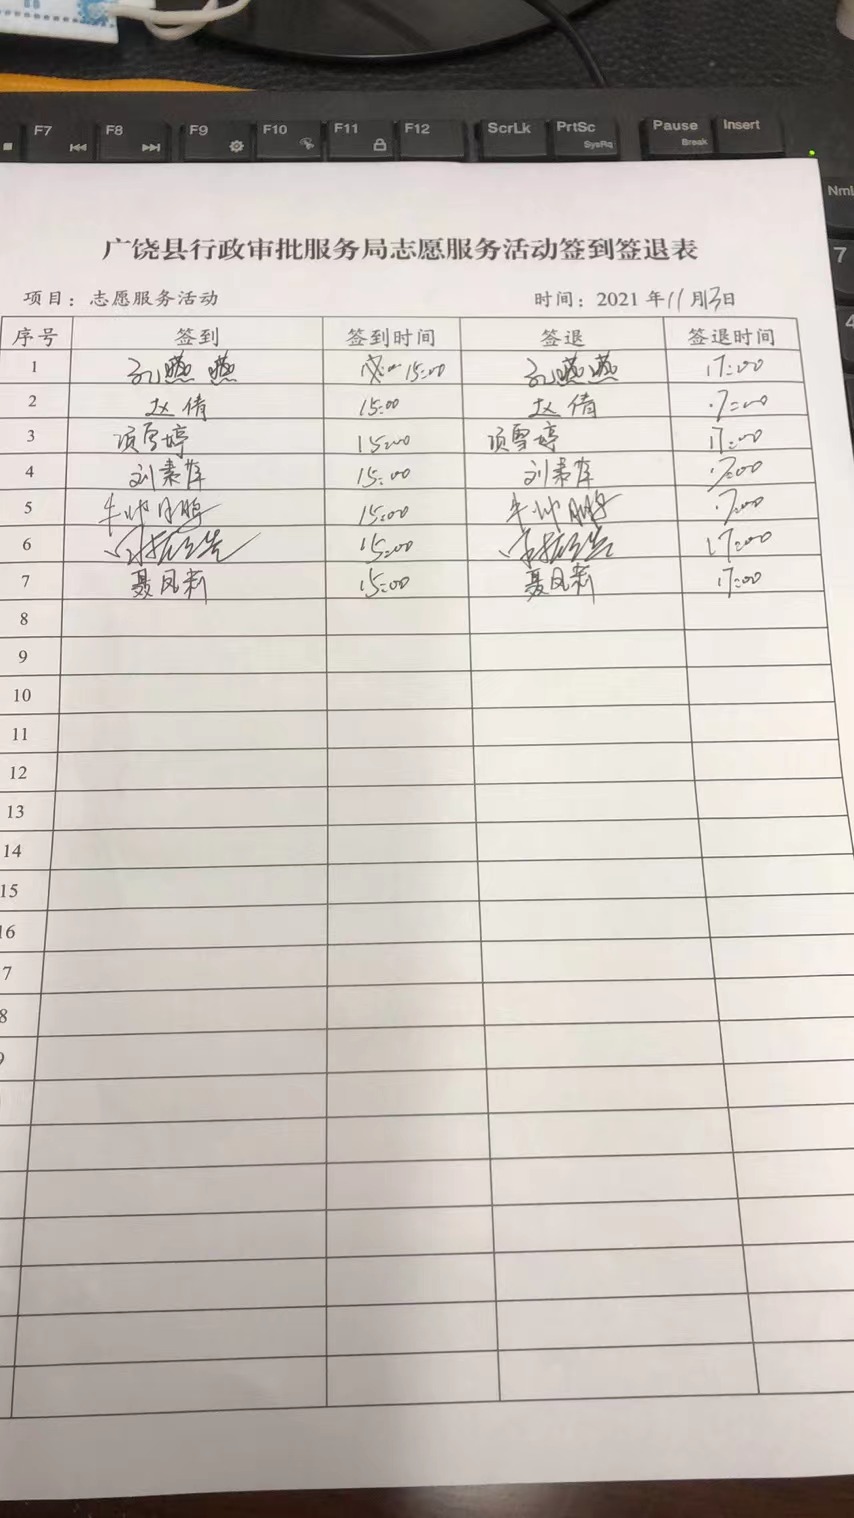 F7 F8 F9 F10 F11 F12 ScrLk PrtSc SysRq Pause Break Insert
NmL
7
4
广饶县行政审批服务局志愿服务活动签到签退表
项目：志愿服务活动 时间：2021 年11月13日
序号 签到 签到时间 签退 签退时间
1 孔燕燕 15:00 孔燕燕 17:00
2 赵倩 15:00 赵倩 17:00
3 项雪婷 15:00 项雪婷 17:00
4 刘素萍 15:00 刘素萍 17:00
5 15:00 17:00
6 15:00 17:00
7 聂凤新 15:00 聂凤新 17:00
8
9
10
11
12
13
14
15
16
7
8
9